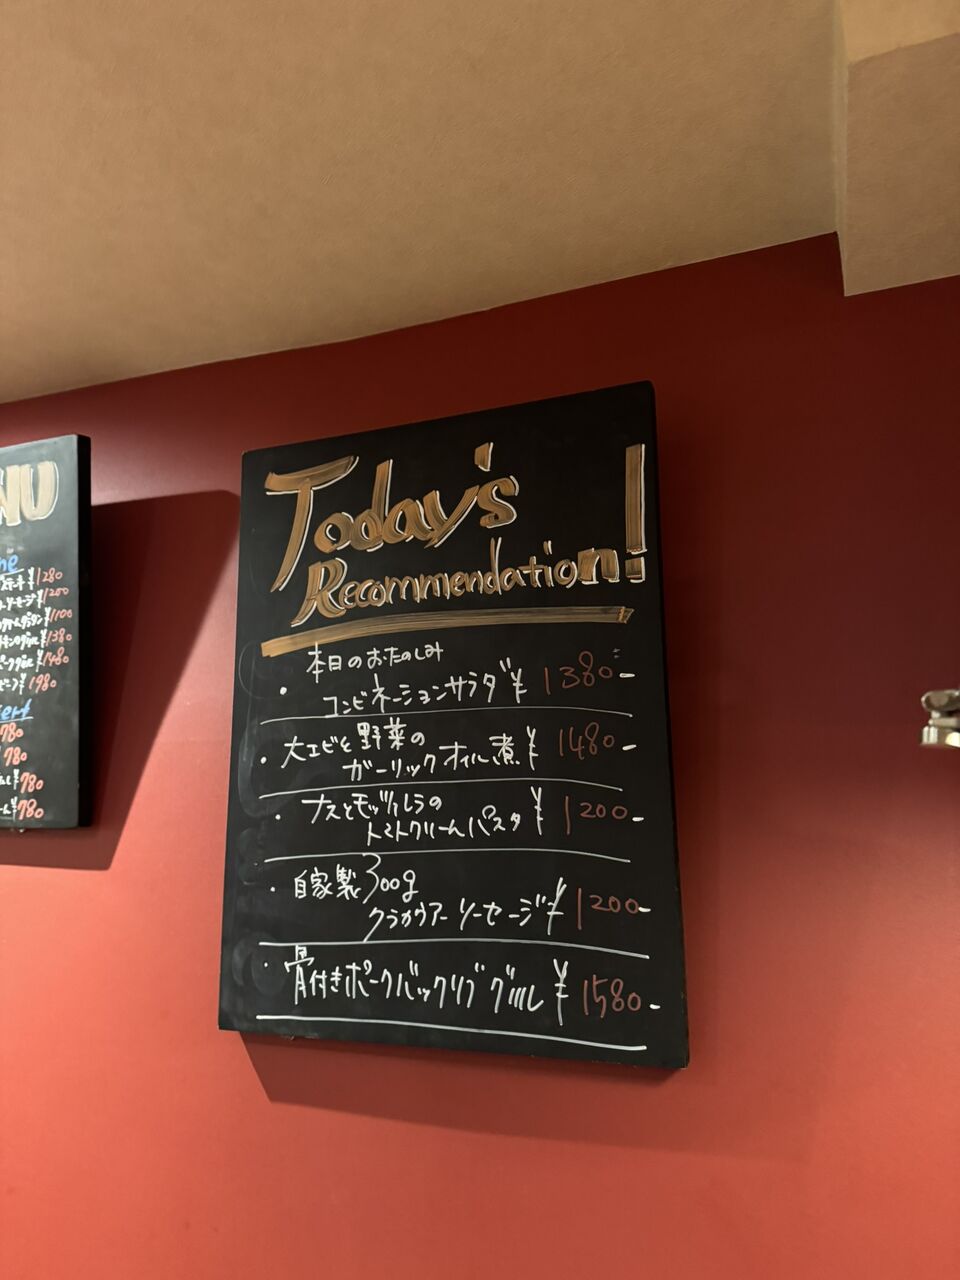 NU
ne
¥1280
ソーセージ¥1200
¥1100
チキンのグリル¥1380
ポークグリル¥1480
ビーフ¥1980
ert
780
780
¥780
ーム¥780
Today's
Recommendation!
本日のおたのしみ
・コンビネーションサラダ¥1380-
・大エビと野菜の
ガーリックオイル煮¥1480-
・ナスとモッツァレラの
トマトクリームパスタ¥1200-
・自家製300g
クラカウアーソーセージ¥1200-
・骨付きポークバックリブグリル¥1580-